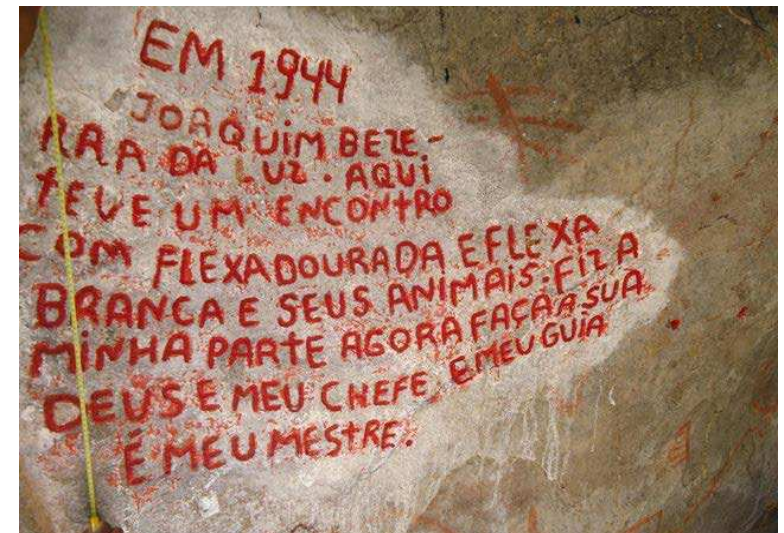 EM 1944
JOAQUIM BEZE-
RRA DA LUZ. AQUI
TEVE UM ENCONTRO
COM FLEXADOURADA E FLEXA
BRANCA E SEUS ANIMAIS. FIZ A
MINHA PARTE AGORA FAÇA A SUA
DEUS E MEU CHEFE, E MEU GUIA
É MEU MESTRE.